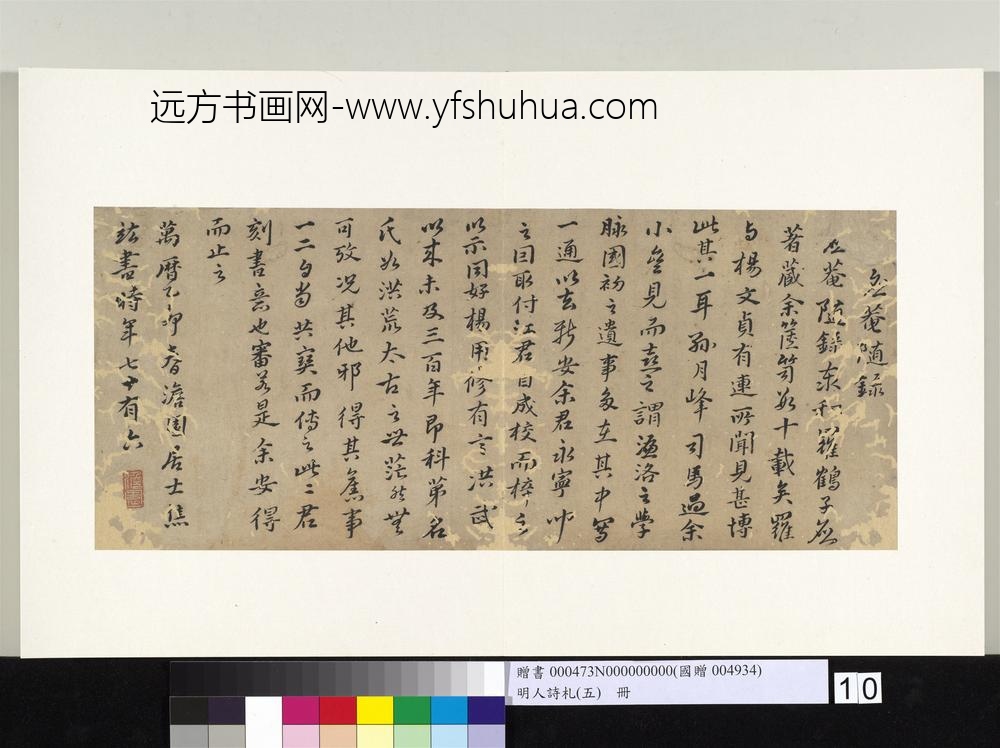 远方书画网-www.yfshuhua.com
菴隨录
菴隨錄泰和羅鶴子應
著藏余篋笥者十載矣羅
与楊文貞有連所聞見甚博
此其一耳孫月峰司馬過余
小壑見而喜之謂濂洛之學
脉國初之遺事多在其中寫
一通以去新安余君永寧
之曰取付江君自成校而梓之
以示同好楊用脩有言洪武
以来未及三百年即科第名
氏如洪荒太古之世茫然無
可攷况其他邪得其舊事
一二自當共寶而傳之此二君
刻書意也審若是余安得
而止之
萬曆乙卯春澹園居士焦
竑書時年七十有六
贈書 000473N000000000(國贈 004934)
明人詩札(五) 冊
10